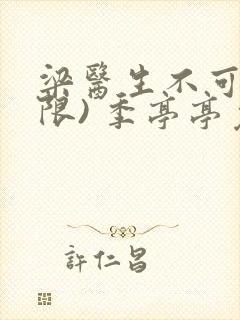 梁醫生不可
限) 季亭亭
許仁昌